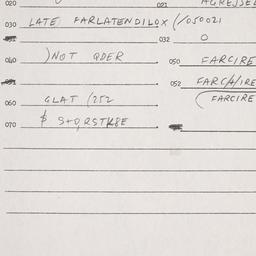 020 021 AGRESSEL
030 LATE FARLATENDILOX (/050021
032 O
040 )NOT QDER 050 FARCIRE
052 FARC/4/IRE
060 GLAT (252 (FARCIRE
070 $ S+O,RSTK8E